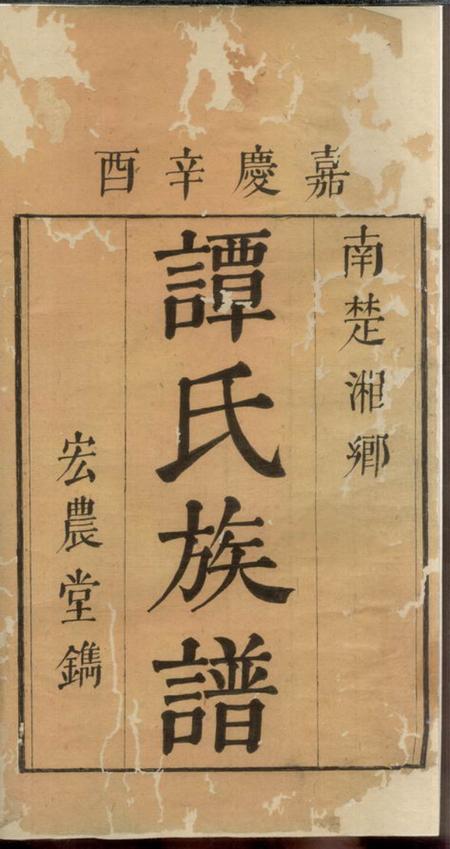 嘉慶辛酉
南楚湘鄉
譚氏族譜
宏農堂鐫